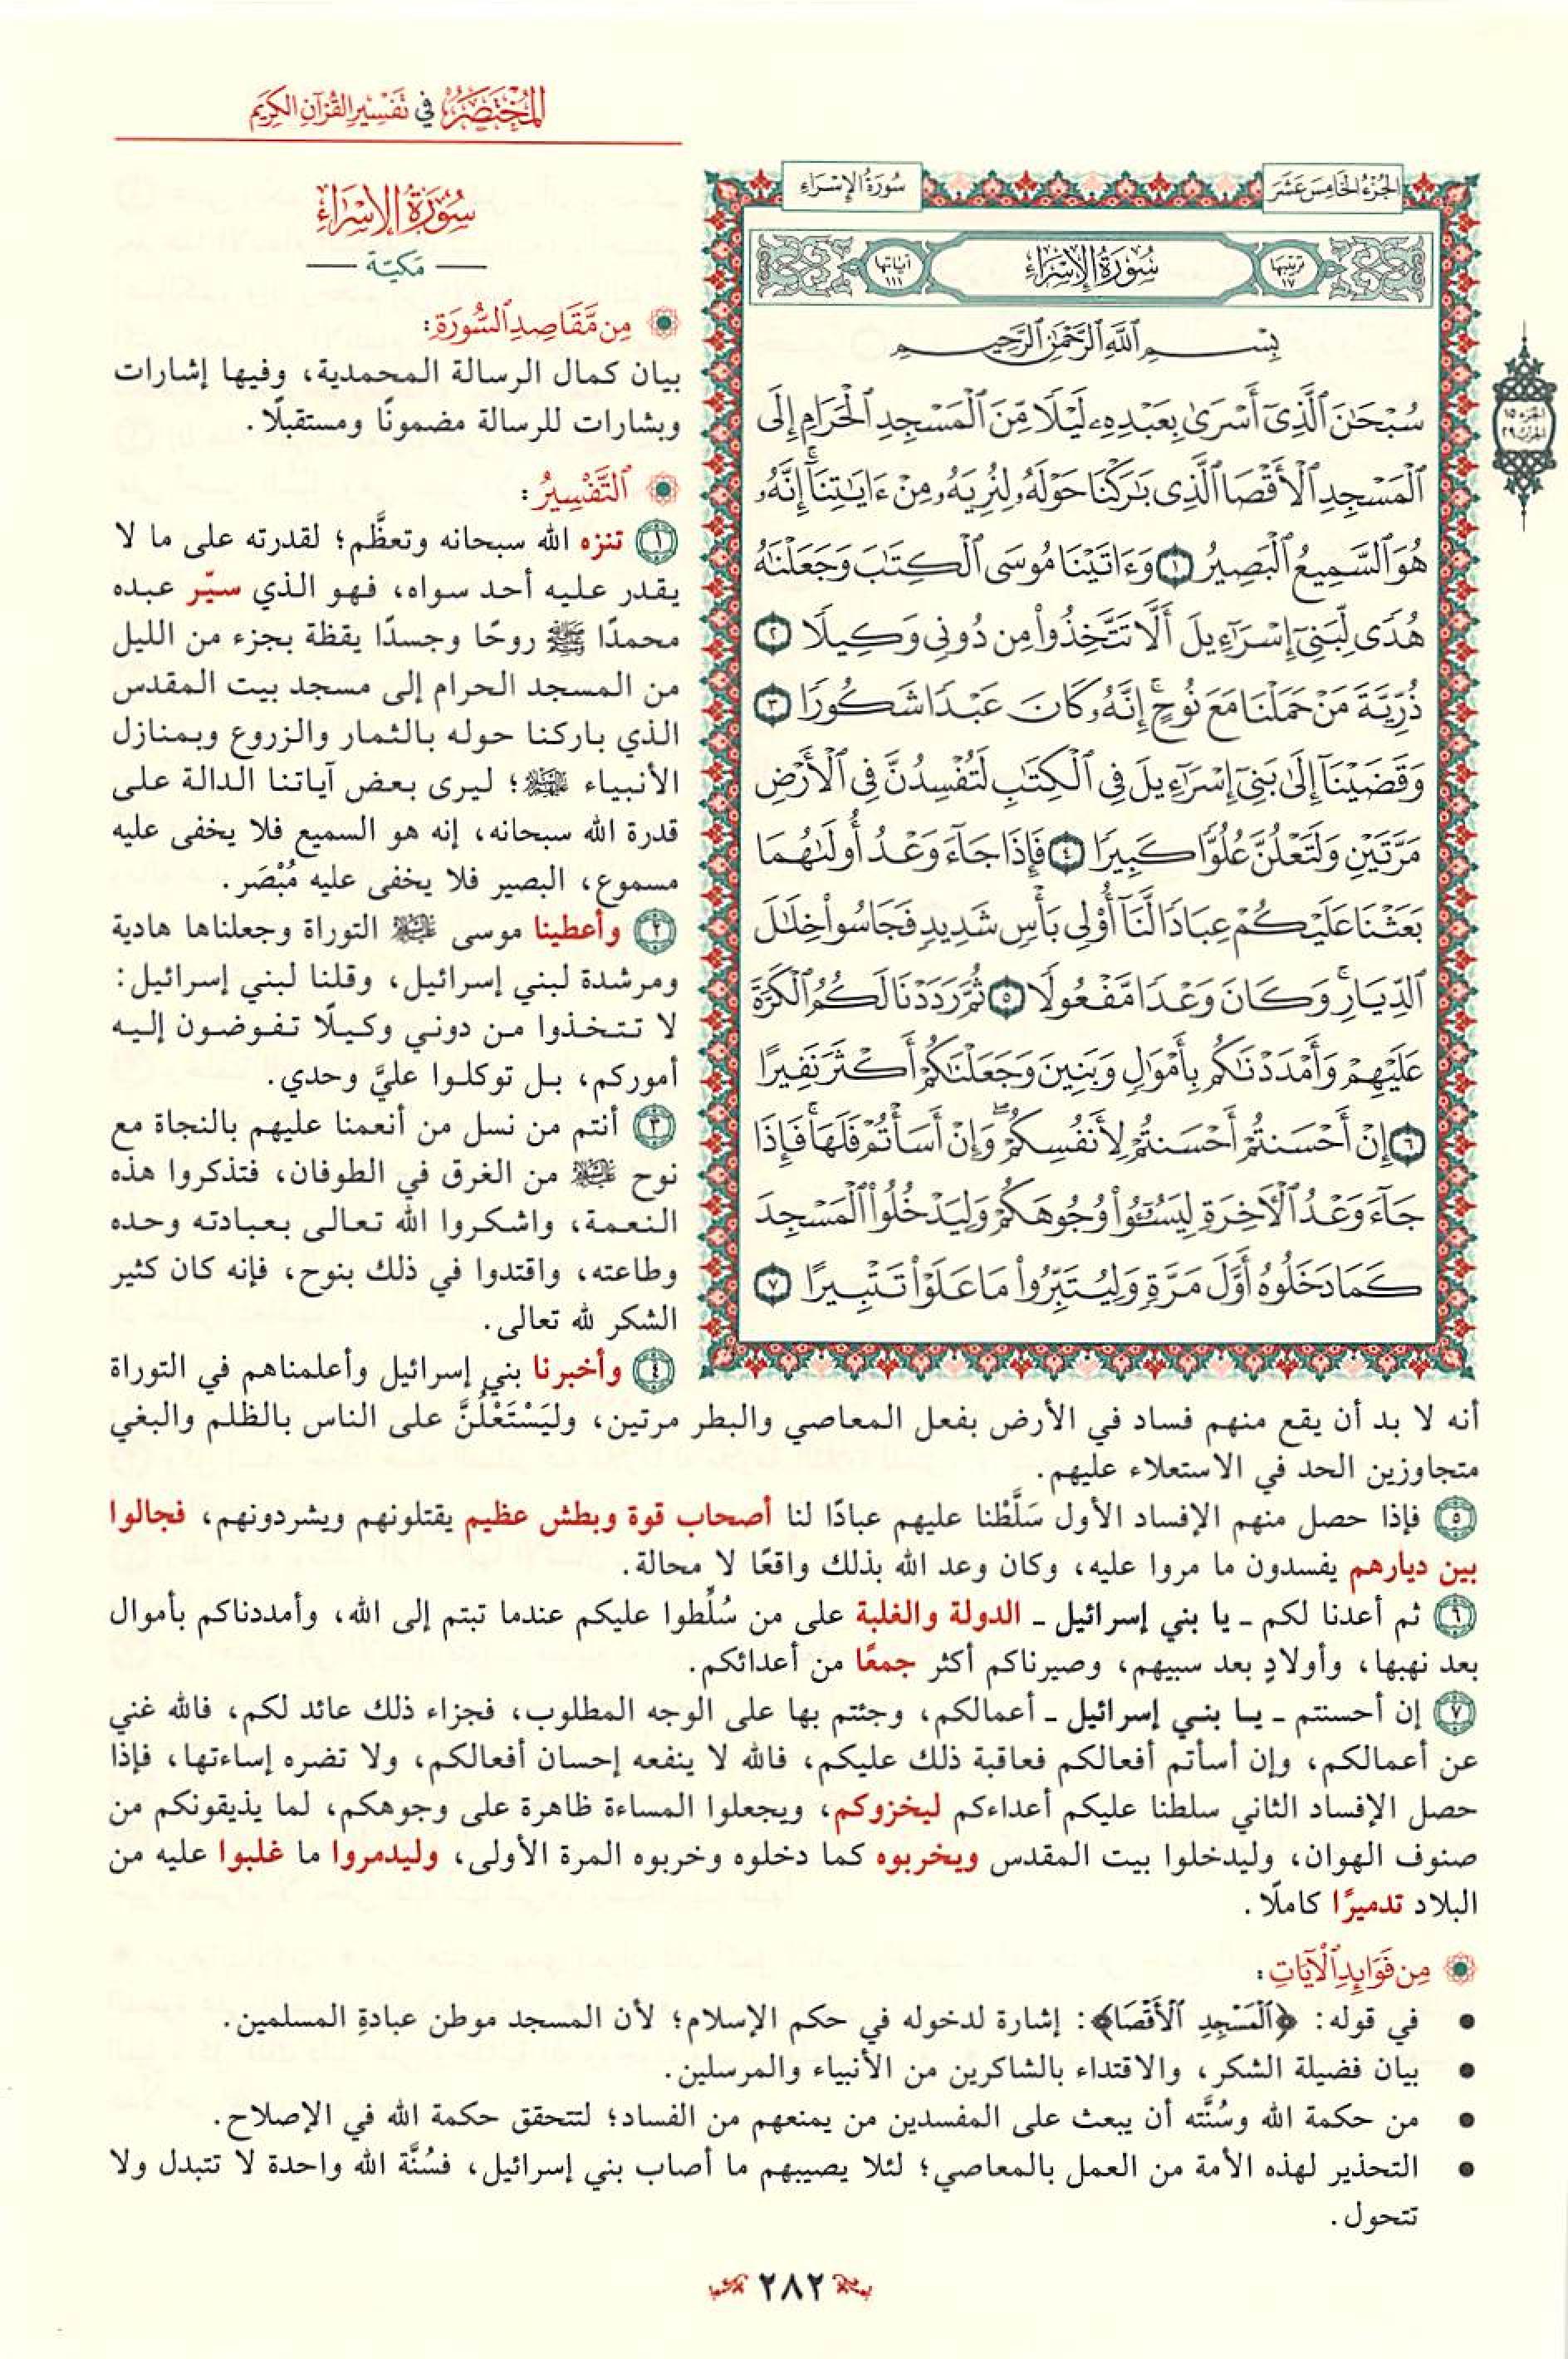 المختصر في تفسير القرآن الكريم
الجزء الخامس عشر
سورة الإسراء
ترتيبها ١٧
سورة الإسراء
آياتها ١١١
بِسْمِ ٱللَّهِ ٱلرَّحْمَٰنِ ٱلرَّحِيمِ
سُبْحَٰنَ ٱلَّذِىٓ أَسْرَىٰ بِعَبْدِهِۦ لَيْلًا مِّنَ ٱلْمَسْجِدِ ٱلْحَرَامِ إِلَى
ٱلْمَسْجِدِ ٱلْأَقْصَا ٱلَّذِى بَٰرَكْنَا حَوْلَهُۥ لِنُرِيَهُۥ مِنْ ءَايَٰتِنَآۚ إِنَّهُۥ
هُوَ ٱلسَّمِيعُ ٱلْبَصِيرُ ١ وَءَاتَيْنَا مُوسَى ٱلْكِتَٰبَ وَجَعَلْنَٰهُ
هُدًى لِّبَنِىٓ إِسْرَٰٓءِيلَ أَلَّا تَتَّخِذُوا۟ مِن دُونِى وَكِيلًا ٢
ذُرِّيَّةَ مَنْ حَمَلْنَا مَعَ نُوحٍۚ إِنَّهُۥ كَانَ عَبْدًا شَكُورًا ٣
وَقَضَيْنَآ إِلَىٰ بَنِىٓ إِسْرَٰٓءِيلَ فِى ٱلْكِتَٰبِ لَتُفْسِدُنَّ فِى ٱلْأَرْضِ
مَرَّتَيْنِ وَلَتَعْلُنَّ عُلُوًّا كَبِيرًا ٤ فَإِذَا جَآءَ وَعْدُ أُولَىٰهُمَا
بَعَثْنَا عَلَيْكُمْ عِبَادًا لَّنَآ أُو۟لِى بَأْسٍ شَدِيدٍ فَجَاسُوا۟ خِلَٰلَ
ٱلدِّيَارِۚ وَكَانَ وَعْدًا مَّفْعُولًا ٥ ثُمَّ رَدَدْنَا لَكُمُ ٱلْكَرَّةَ
عَلَيْهِمْ وَأَمْدَدْنَٰكُم بِأَمْوَٰلٍ وَبَنِينَ وَجَعَلْنَٰكُمْ أَكْثَرَ نَفِيرًا
٦ إِنْ أَحْسَنتُمْ أَحْسَنتُمْ لِأَنفُسِكُمْۖ وَإِنْ أَسَأْتُمْ فَلَهَاۚ فَإِذَا
جَآءَ وَعْدُ ٱلْءَاخِرَةِ لِيَسُۥٓـُٔوا۟ وُجُوهَكُمْ وَلِيَدْخُلُوا۟ ٱلْمَسْجِدَ
كَمَا دَخَلُوهُ أَوَّلَ مَرَّةٍ وَلِيُتَبِّرُوا۟ مَا عَلَوْا۟ تَتْبِيرًا ٧
الجزء ١٥
الحزب ٢٩
سورة الإسراء
مكية
من مقاصد السورة:
بيان كمال الرسالة المحمدية، وفيها إشارات
وبشارات للرسالة مضمونًا ومستقبلًا.
التفسير:
١ تنزه الله سبحانه وتعظَّم؛ لقدرته على ما لا
يقدر عليه أحد سواه، فهو الذي سيّر عبده
محمدًا ﷺ روحًا وجسدًا يقظة بجزء من الليل
من المسجد الحرام إلى مسجد بيت المقدس
الذي باركنا حوله بالثمار والزروع وبمنازل
الأنبياء ؛ ليرى بعض آياتنا الدالة على
قدرة الله سبحانه، إنه هو السميع فلا يخفى عليه
مسموع، البصير فلا يخفى عليه مُبْصَر.
٢ وأعطينا موسى التوراة وجعلناها هادية
ومرشدة لبني إسرائيل، وقلنا لبني إسرائيل:
لا تتخذوا من دوني وكيلًا تفوضون إليه
أموركم، بل توكلوا عليَّ وحدي.
٣ أنتم من نسل من أنعمنا عليهم بالنجاة مع
نوح من الغرق في الطوفان، فتذكروا هذه
النعمة، واشكروا الله تعالى بعبادته وحده
وطاعته، واقتدوا في ذلك بنوح، فإنه كان كثير
الشكر لله تعالى.
٤ وأخبرنا بني إسرائيل وأعلمناهم في التوراة
أنه لا بد أن يقع منهم فساد في الأرض بفعل المعاصي والبطر مرتين، وليَسْتَعْلُنَّ على الناس بالظلم والبغي
متجاوزين الحد في الاستعلاء عليهم.
٥ فإذا حصل منهم الإفساد الأول سَلَّطْنا عليهم عبادًا لنا أصحاب قوة وبطش عظيم يقتلونهم ويشردونهم، فجالوا
بين ديارهم يفسدون ما مروا عليه، وكان وعد الله بذلك واقعًا لا محالة.
٦ ثم أعدنا لكم ـ يا بني إسرائيل ـ الدولة والغلبة على من سُلِّطوا عليكم عندما تبتم إلى الله، وأمددناكم بأموال
بعد نهبها، وأولادٍ بعد سبيهم، وصيرناكم أكثر جمعًا من أعدائكم.
٧ إن أحسنتم ـ يا بني إسرائيل ـ أعمالكم، وجئتم بها على الوجه المطلوب، فجزاء ذلك عائد لكم، فالله غني
عن أعمالكم، وإن أسأتم أفعالكم فعاقبة ذلك عليكم، فالله لا ينفعه إحسان أفعالكم، ولا تضره إساءتها، فإذا
حصل الإفساد الثاني سلطنا عليكم أعداءكم ليخزوكم، ويجعلوا المساءة ظاهرة على وجوهكم، لما يذيقونكم من
صنوف الهوان، وليدخلوا بيت المقدس ويخربوه كما دخلوه وخربوه المرة الأولى، وليدمروا ما غلبوا عليه من
البلاد تدميرًا كاملًا.
من فوائد الآيات:
• في قوله: ﴿ٱلْمَسْجِدِ ٱلْأَقْصَا﴾: إشارة لدخوله في حكم الإسلام؛ لأن المسجد موطن عبادةِ المسلمين.
• بيان فضيلة الشكر، والاقتداء بالشاكرين من الأنبياء والمرسلين.
• من حكمة الله وسُنَّته أن يبعث على المفسدين من يمنعهم من الفساد؛ لتتحقق حكمة الله في الإصلاح.
• التحذير لهذه الأمة من العمل بالمعاصي؛ لئلا يصيبهم ما أصاب بني إسرائيل، فسُنَّة الله واحدة لا تتبدل ولا
تتحول.
٢٨٢